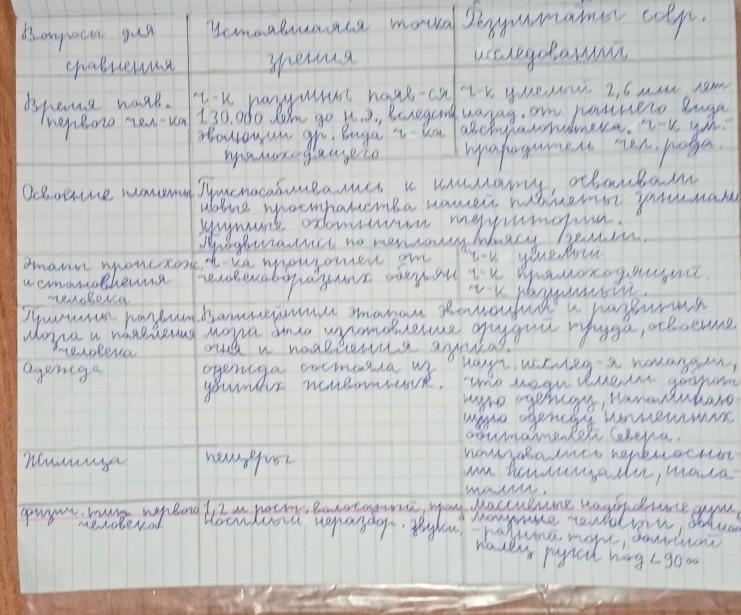 Вопросы для
сравнения
Устоявшаяся точка
зрения
Результаты совр.
исследований
Время появ.
первого чел-ка
ч-к разумны появ-ся
130.000 лет до н.э., вследств
эволюции др. вида ч-ка
прямоходящего
ч-к умелый 2,6 млн лет
назад. от раннего вида
австралопитека. ч-к ум.-
прародитель чел. рода.
Освоение планеты
Приспосабливались к климату, осваивали
новые пространства нашей планеты занимали
крупные охотничьи территории.
Продвигались по теплому поясу земли.
Этапы происхож.
и становления
человека
ч-ка произошел от
человекообразных обезьян
ч-к умелый
ч-к прямоходящий.
ч-к разумный.
Причины развит.
мозга и появления
человека
Важнейшим этапам эволюции и развития
мозга было изготовление орудий труда, освоение
огня и появления языка.
Одежда
одежда состояла из
убитых животных.
науч. исслед-я показали,
что люди имели доброт
ную одежду, напоминаю
щую одежду нынешних
обитателей Севера.
Жилища
пещеры
пользовались переносны
ми жилищами, шала-
шами.
физич. тип первого
человека
1,2 м рост. волосатый,
носимый неразбор. звуки,
массивные надбровные дуги,
мощные челюсти,
разный торс, большой
палец руки под <90°